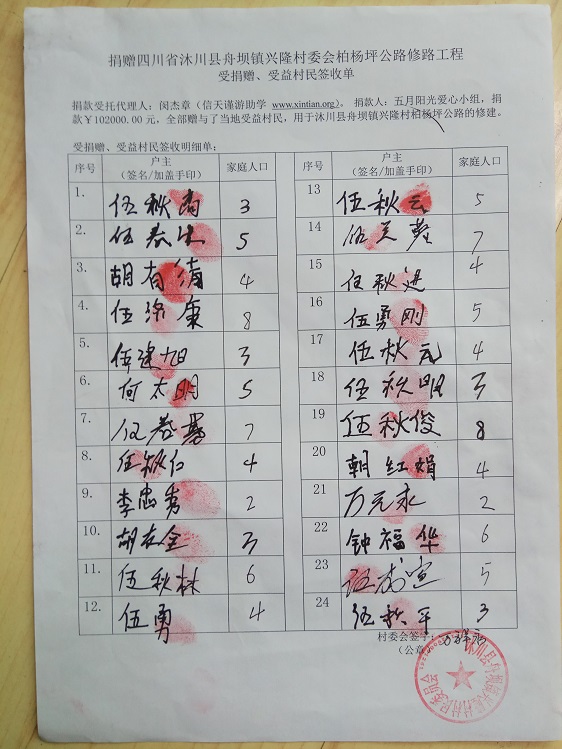 捐赠四川省沐川县舟坝镇兴隆村委会柏杨坪公路修路工程
受捐赠、受益村民签收单
捐款受托代理人：闵杰章（信天谨游助学 www.xintian.org）， 捐款人：五月阳光爱心小组，捐
款￥102000.00 元，全部赠与了当地受益村民，用于沐川县舟坝镇兴隆村柏杨坪公路的修建。
受捐赠、受益村民签收明细单：
序号 户主（签名/加盖手印） 家庭人口
1. 伍秋南 3
2. 伍春生 5
3. 胡有清 4
4. 伍添康 8
5. 伍建旭 3
6. 何太明 5
7. 7
8. 4
9. 李忠秀 2
10. 胡友全 3
11. 伍秋林 6
12. 伍勇 4
序号 户主（签名/加盖手印） 家庭人口
13 伍秋云 5
14 7
15 伍秋进 4
16 伍勇刚 5
17 伍秋元 4
18 伍秋明 3
19 伍秋俊 8
20 朝红娟 4
21 万元永 2
22 钟福华 6
23 5
24 伍秋平 3
村委会签字：
（公章）